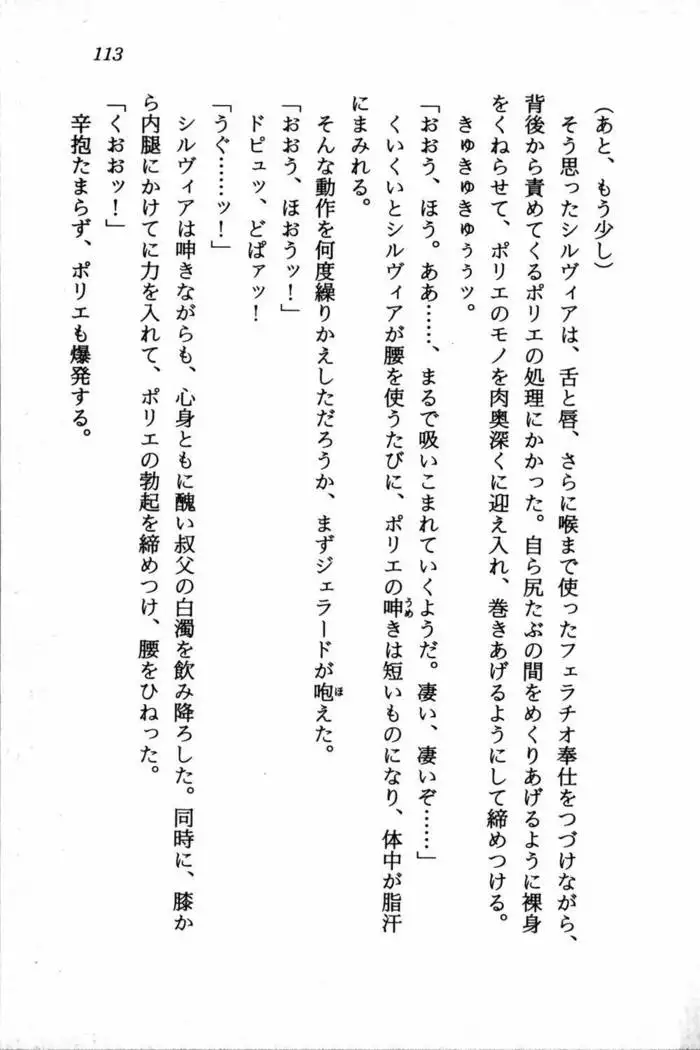 113
(あと、もう少し)
そう思ったシルヴィアは、舌と唇、さらに喉まで使ったフェラチオ奉仕をつづけながら、
背後から責めてくるポリエの処理にかかった。自ら尻たぶの間をめくりあげるように裸身
をくねらせて、ポリエのモノを肉奥深くに迎え入れ、巻きあげるようにして締めつける。
きゅきゅきゅぅぅッ。
「おおう、ほう。ああ……、まるで吸いこまれていくようだ。凄い、凄いぞ……」
くいくいとシルヴィアが腰を使うたびに、ポリエの呻きは短いものになり、体中が脂汗
にまみれる。
そんな動作を何度繰りかえしただろうか、まずジェラードが咆えた。
「おおう、ほおうッ！」
ドピュッ、どぱァッ！
「うぐ……ッ！」
シルヴィアは呻きながらも、心身ともに醜い叔父の白濁を飲み降ろした。同時に、膝か
ら内腿にかけてに力を入れて、ポリエの勃起を締めつけ、腰をひねった。
「くおおッ！」
辛抱たまらず、ポリエも爆発する。